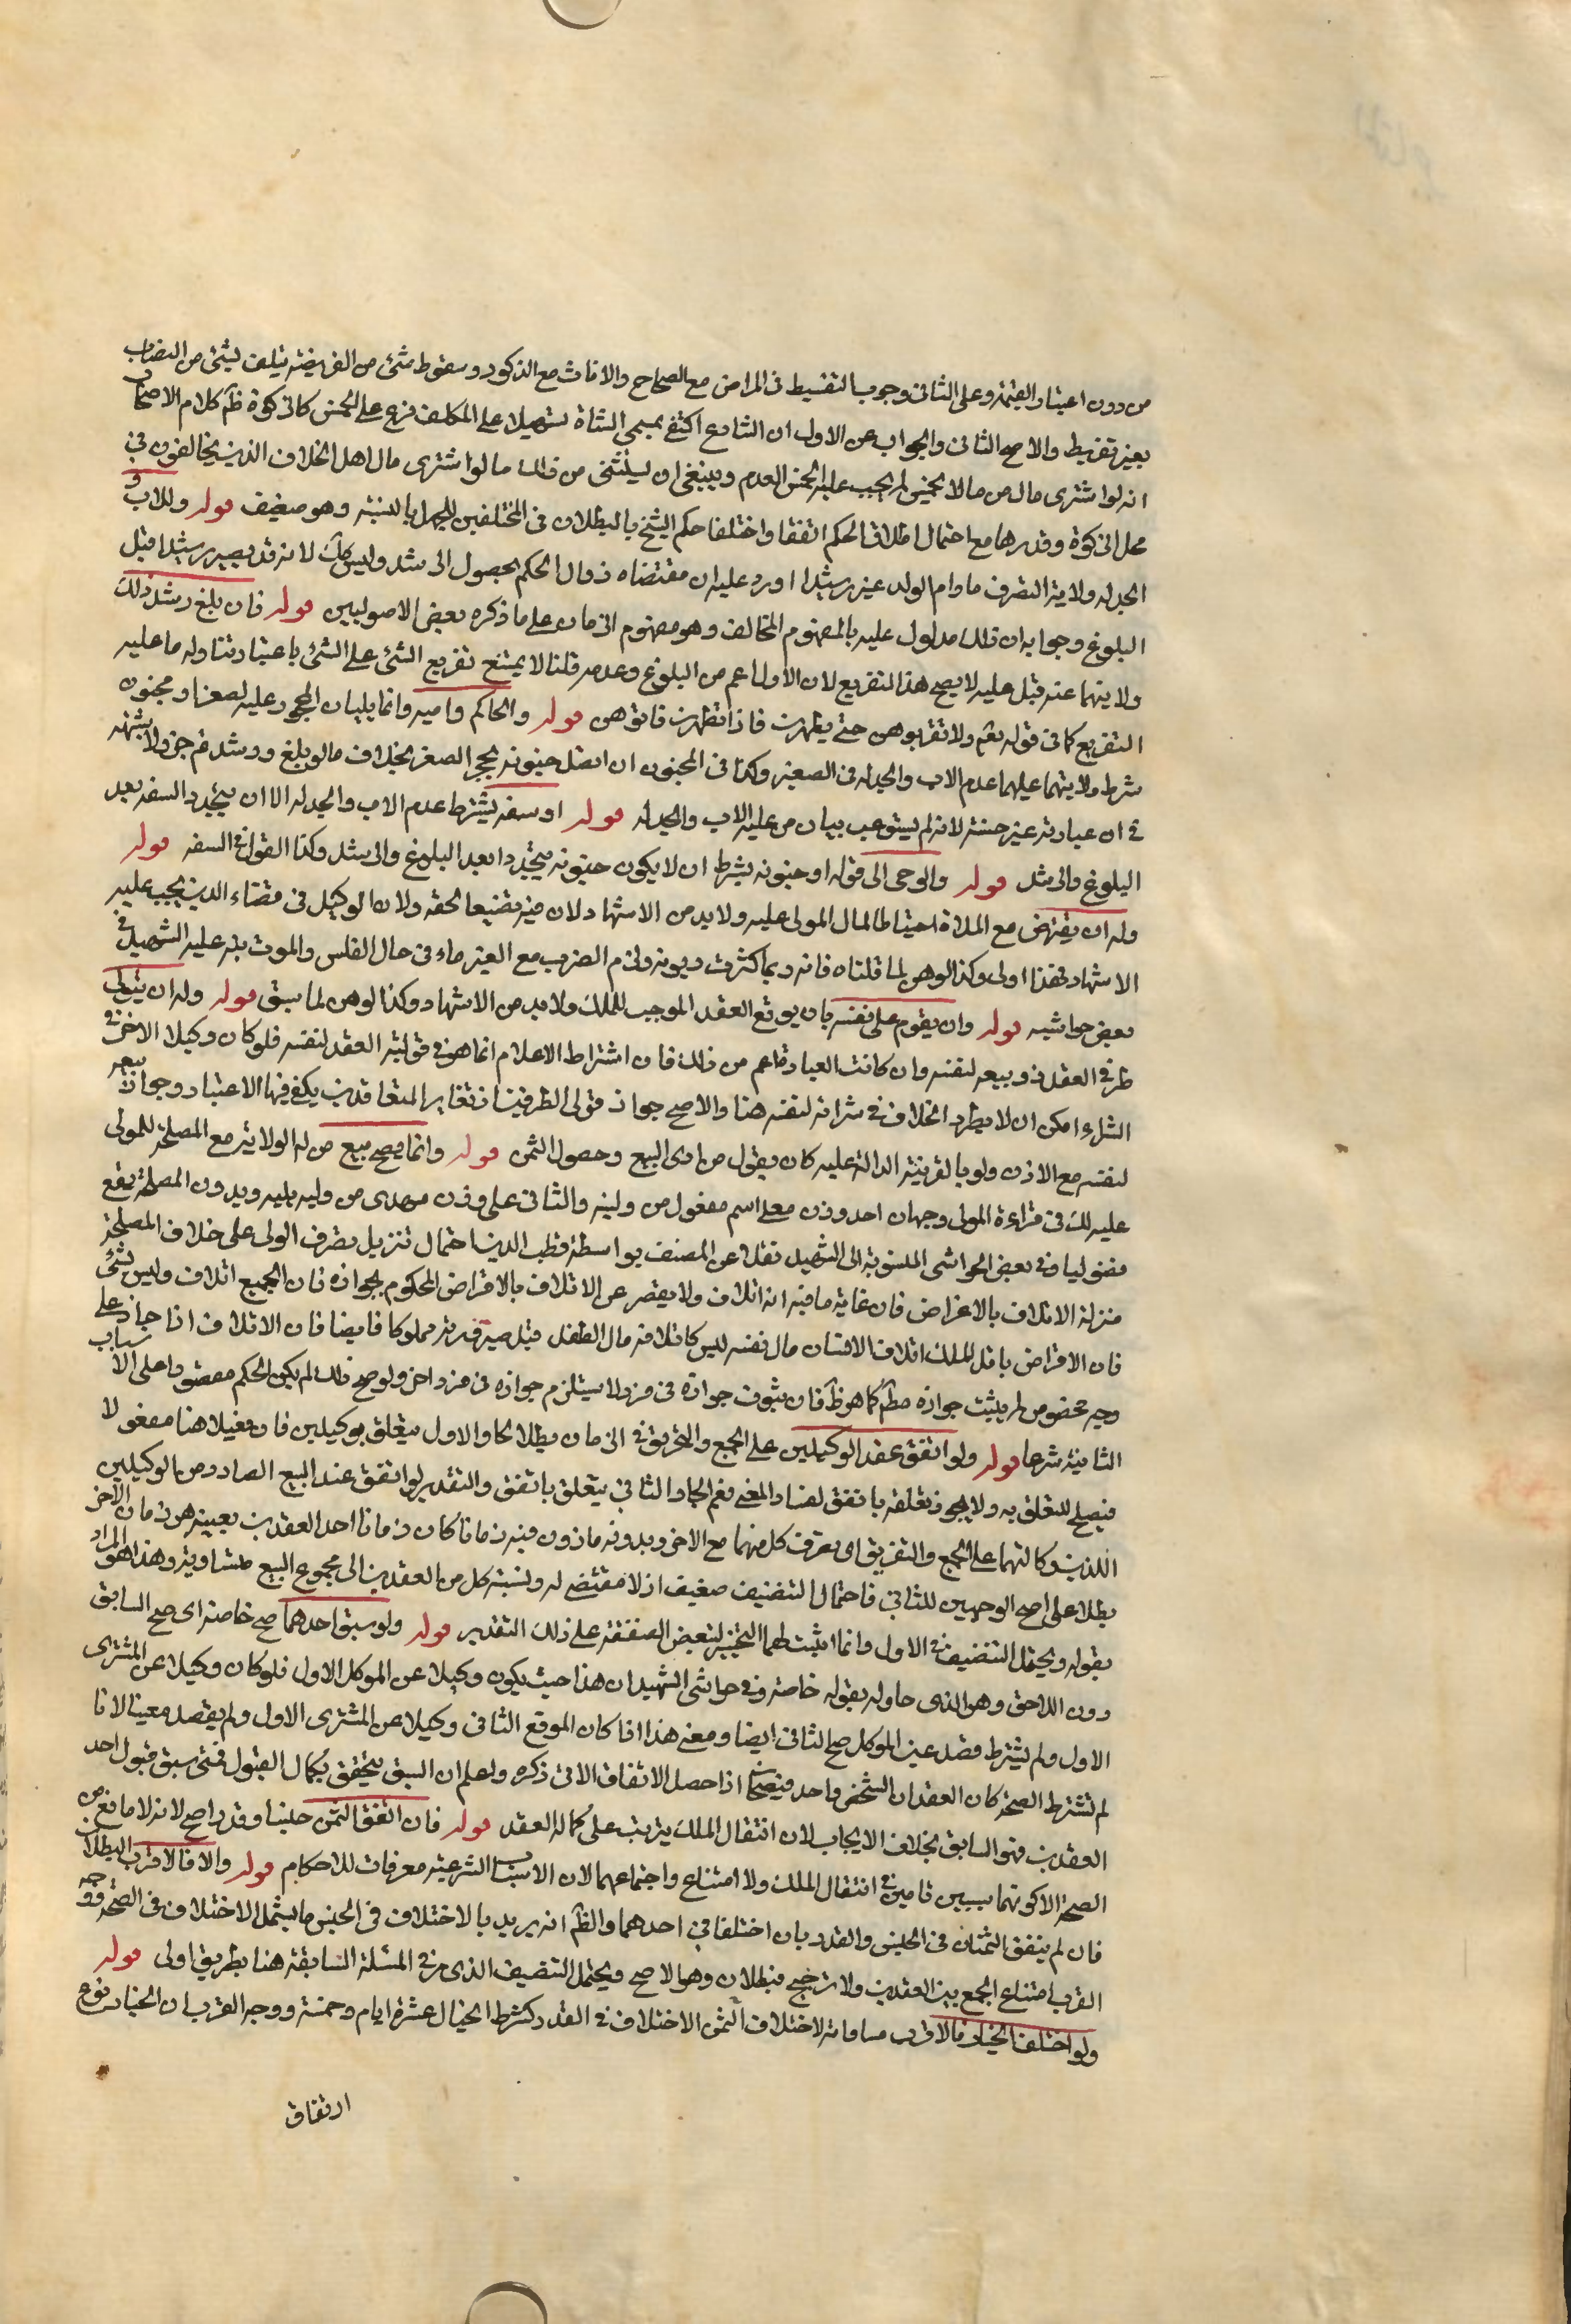 من دون اعتبار القيمة وعلى الثاني وجوب التقسيط في المراض مع الصحاح والاناث مع الذكور وسقوط شئ من الفريضة بتلف شئ من النصاب
بغير تفريط والاصح الثاني والجواب عن الاول ان الشارع اكتفى بمسمى الشاة تسهيلا على المكلف فرع على الخمس كالزكوة ظم كلام الاصحاب
انه لو اشترى مال من مالا يخمس لم يجب عليه الخمس العدم وينبغي ان يستثنى من ذلك ما لو اشترى مال اهل الخلاف الذين يخالفون في
محل الزكوة وقدرها مع احتمال اطلاق الحكم اتفقا واختلفا حكم الشيخ بالبطلان في المختلفين للجهل بالنسبة وهو ضعيف قوله وللاب و
الجد له ولاية التصرف مادام الولد غير رشيد ا اورد عليه ان مقتضاه زوال الحكم بحصول الرشد وليس كك لانه قد يصير رشيدا قبل
البلوغ وجوابه ان ذلك مدلول عليه بالمفهوم المخالف وهو مفهوم الزمان على ما ذكره بعض الاصوليين قوله فان بلغ رشد ذلك
ولايتهما عنه قيل عليه لا يصح هذا التفريع لان الاول اعم من البلوغ وعدمه قلنا لا يمتنع تفريع الشئ على الشئ باعتبار تناوله ما عليه
التفريع كما في قوله تعم ولا تقربوهن حتى يطهرن فاذا تطهرن فاتوهن قوله والحاكم وامينه وانما يليان المحجور عليه لصغر او مجنون
شرط ولايتهما عليهما عدم الاب والجد له في الصغير وكذا في المجنون ان اتصل جنونه بحجر الصغر بخلاف ما لو بلغ ورشد ثم جن ولا شبهة
في ان عبارته غير حسنة لانه لم يستوعب بيان من عليه الاب والجد له قوله او سفه يشترط عدم الاب والجد له الا ان يتجدد السفه بعد
البلوغ والرشد قوله والوصي الى قوله او جنونه بشرط ان لا يكون جنونه يتجدد ا بعد البلوغ والرشد وكذا القول في السفه قوله
وله ان يقترض مع الملاءة احتياطا لمال المولى عليه ولا بد من الاشهاد لان فيه تضييعا لحقه ولان الوكيل في قضاء الدين يجب عليه
الاشهاد فهذا اولى وكذا لو رهن لما قلناه فانه ربما كثرت ديونه ولزم الضرب مع الغرماء في حال الفلس والموت نبه عليه الشهيد في
بعض حواشيه قوله وان يقوم على نفسه بان يوقع العقد الموجب للملك ولابد من الاشهاد وكذا لو رهن لما سبق قوله وله ان يتولى
طرفي العقد وبيعه لنفسه وان كانت العبارة اعم من ذلك فان اشتراط الاعلام انما هو في توليته العقد لنفسه فلو كان وكيلا لاخر في
الشراء امكن ان لا يطرد الخلاف في شرائه لنفسه هنا والاصح جواز تولى الطرفين اذ تغاير المتعاقدين يكفي فيها الاعتبار وجواز بيعه
لنفسه مع الاذن ولو بالقرينة الدالة عليه كان يقول من ارى البيع وحصول الثمن قوله وانما يصح بيع من له الولاية مع المصلحة للمولى
عليه لك في قراءة المولى وجهان احد وزن معلى اسم مفعول من وليه والثاني على وزن مهدى من وليه يليه وبدون المصلحة يقع
فضوليا وفي بعض الحواشي المنسوبة الى الشهيد نقلا عن المصنف بواسطة قطب الدين احتمال تنزيل تصرف الولى على خلاف المصلحة
منزلة الاتلاف بالاغراض فان غاية ما فيه انه اتلاف ولا يقصر عن الاتلاف بالاقراض المحكوم بجوازه فان الجميع اتلاف وليس بشئ
فان الاقراض ناقل الملك اتلاف الانسان مال نفسه ليس كاتلافه مال الطفل قبل صيرورته مملوكا فايضا فان الاتلاف اذا جاز على
وجه مخصوص لم يثبت جوازه مطم كما هو ظم فان ثبوت جوازه في فرد لا يستلزم جوازه في فرد اخر ولو صح ذلك لم يكن الحكم مقصورا على الاسباب
الثابتة شرعا قوله ولو اتفق عقد الوكيلين على الجمع والتفريق في الزمان بطلا الحاو الاول متعلق بوكيلين فان فعيلا هنا مفعولا
فيصلح للتعلق به ولا يجوز تعلقه باتفق لفساد المعنى فعم الجار الثاني يتعلق باتفق والتقدير لو اتفق عند البيع الصادر من الوكيلين
اللذين وكالتهما على الجمع والتفريق اى تعرف كل منهما مع الاخر وبدونه ماذون فيه زمانا كان زمانا احد العقدين بعينه هو زمان الاخر
بطلا على اصح الوجهين للثاني فاحتمال التنصيف ضعيف اذ لا مقتضى له ونسبة كل من العقدين الى مجموع البيع متساوية وهذا هو المراد
بقوله ويحتمل التنصيف في الاول وانما اثبت لهما التخيير لتبعض الصفقة على ذلك التقدير قوله ولو سبق احدهما صح خاصة اى صح السابق
دون اللاحق وهو الذى حاوله بقوله خاصة وفي حواشي الشهيد ان هذا حيث يكون وكيلا عن الموكل الاول فلو كان وكيلا عن المشترى
الاول ولم يشترط قصد عين الموكل صح الثاني ايضا ومعنى هذا اذا كان الموقع الثاني وكيلا عن المشترى الاول ولم يقصد معينا لانا
لم نشترط الصحة كان العقدان لشخص واحد فيصحان اذا حصل الاتفاق الاتي ذكره ولعلم ان السبق يتحقق بكمال القبول فمتى سبق قبول احد
العقدين فهو السابق بخلاف الايجاب لان انتقال الملك يترتب على كماله العقد قوله فان اتفق الثمن جنسا وقدرا صح لانه لا مانع من
الصحة الا كونهما سببين تامين في انتقال الملك ولا امتناع واجتماعهما لان الاسباب الشرعية معرفات للاحكام قوله والا فالاقرب البطلان
فان لم يتفق الثمنان في الجنس والقدر بان اختلفا في احدهما والظم انه يريد بالاختلاف في الجنس ما يشمل الاختلاف في الصحة ووجه
القرب امتناع الجمع بين العقدين ولا ترجيح فيبطلان وهو الاصح ويحتمل التنصيف الذى مر في المسئلة السابقة هنا بطريق اولى قوله
ولو اختلف الخيار فالاقرب مساواته لاختلاف الثمن الاختلاف في القدر كشرط الخيار عشرة ايام وخمسة ووجه القرب ان الخيار نوع
ارتفاق